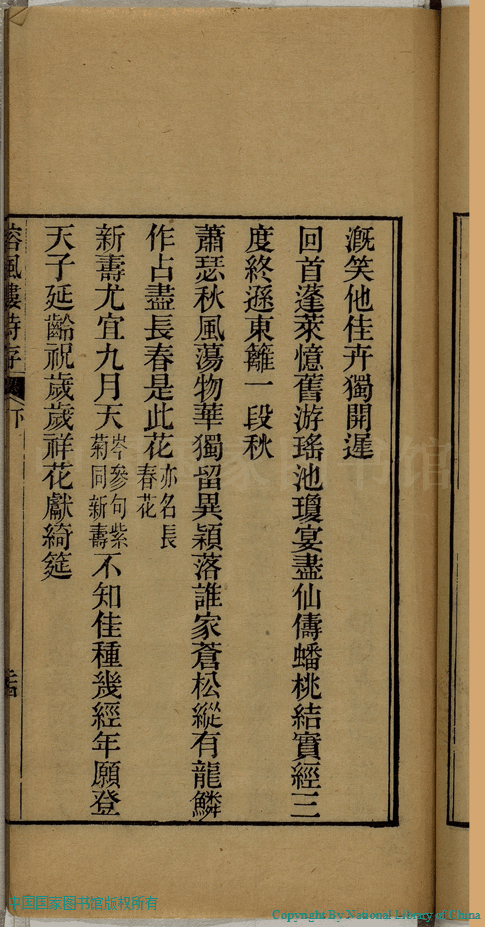 漑笑他佳卉獨開遲
回首蓬萊憶舊游瑤池瓊宴盡仙儔蟠桃結實經三
度終遜東籬一段秋
蕭瑟秋風蕩物華獨留異穎落誰家蒼松縱有龍鱗
作占盡長春是此花亦名長春花
新壽尤宜九月天岑參句紫菊同新壽不知佳種幾經年願登
天子延齡祝歲歲祥花獻綺筵
風樓詩存
下
中国国家图书馆版权所有
Copyright By National Library of China